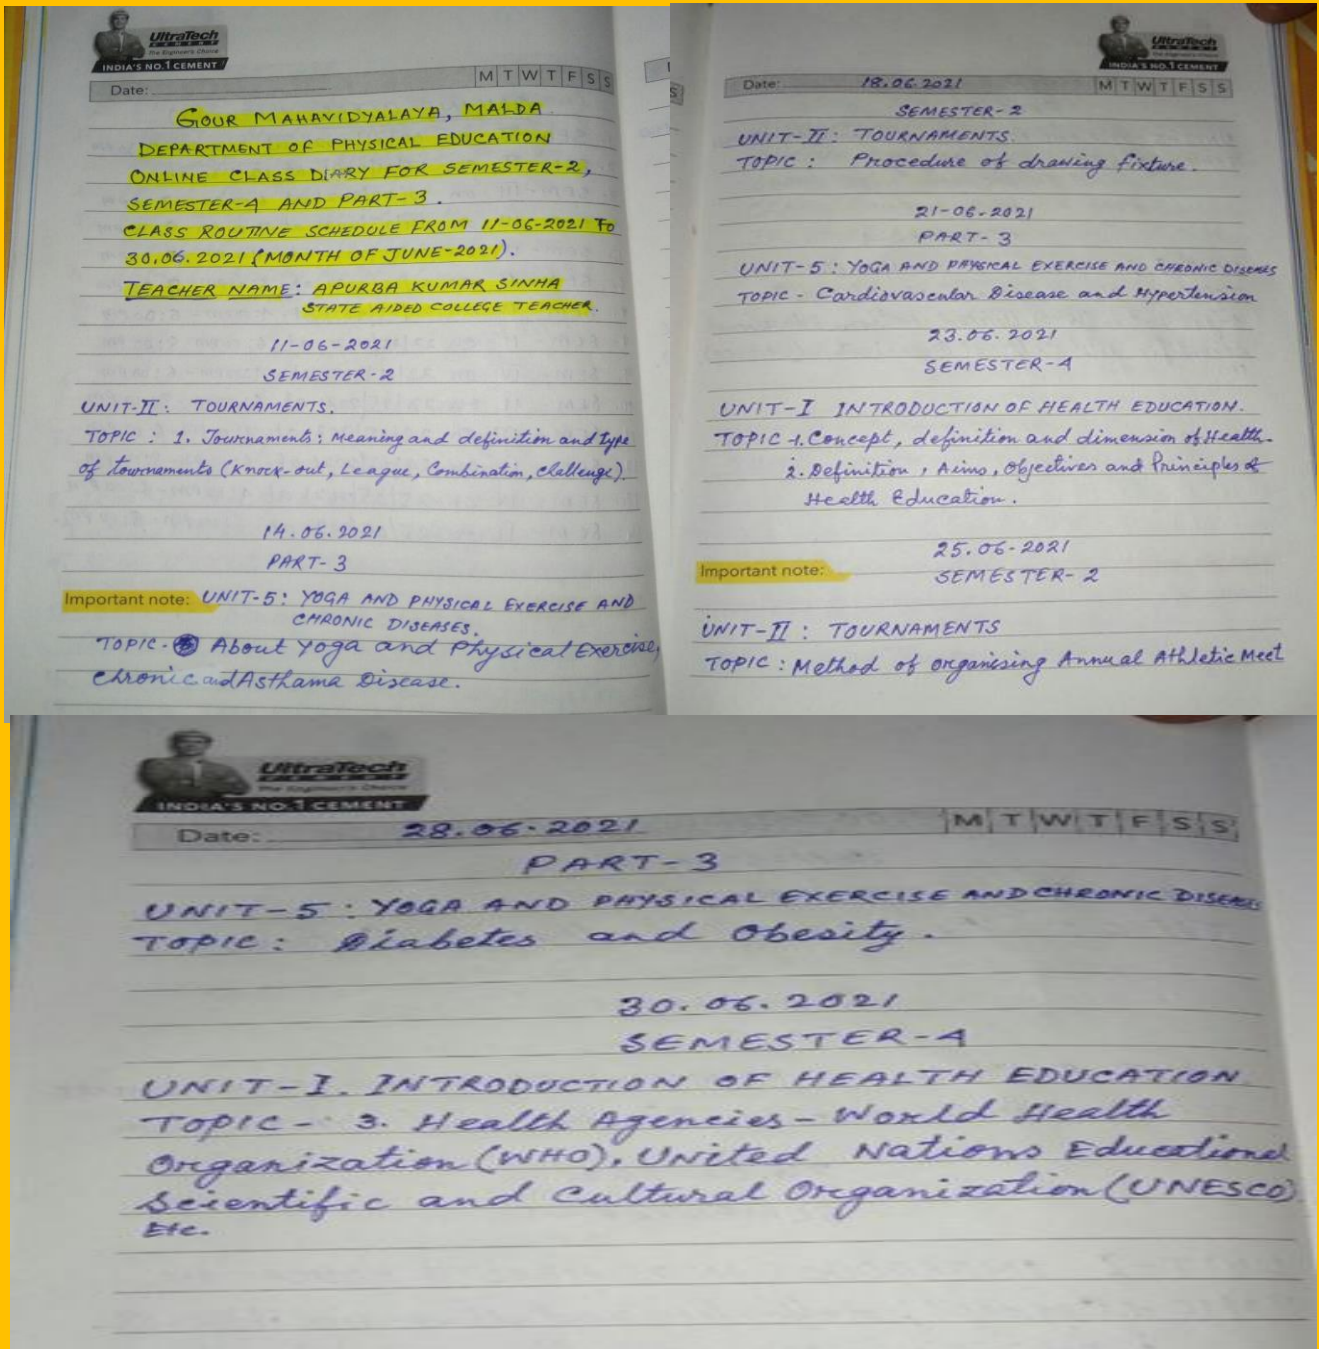 UltraTech
CEMENT
The Engineer's Choice
INDIA'S NO.1 CEMENT
M T W T F S S
Date:
GOUR MAHAVIDYALAYA, MALDA
DEPARTMENT OF PHYSICAL EDUCATION
ONLINE CLASS DIARY FOR SEMESTER-2,
SEMESTER-4 AND PART-3.
CLASS ROUTINE SCHEDULE FROM 11-06-2021 TO
30.06.2021 (MONTH OF JUNE-2021).
TEACHER NAME: APURBA KUMAR SINHA
STATE AIDED COLLEGE TEACHER.
11-06-2021
SEMESTER-2
UNIT-II: TOURNAMENTS.
TOPIC: 1. Tournaments: Meaning and definition and type
of tournaments (Knock-out, League, Combination, challenge).
14.06.2021
PART-3
Important note: UNIT-5: YOGA AND PHYSICAL EXERCISE AND
CHRONIC DISEASES.
TOPIC- About Yoga and Physical Exercise,
Chronic and Asthama Disease.
UltraTech
CEMENT
The Engineer's Choice
INDIA'S NO.1 CEMENT
Date: 18.06.2021 M T W T F S S
SEMESTER-2
UNIT-II: TOURNAMENTS.
TOPIC: Procedure of drawing fixture.
21-06-2021
PART-3
UNIT-5: YOGA AND PHYSICAL EXERCISE AND CHRONIC DISEASES
TOPIC- Cardiovascular Disease and Hypertension
23.06.2021
SEMESTER-4
UNIT-I INTRODUCTION OF HEALTH EDUCATION.
TOPIC-1. Concept, definition and dimension of Health.
2. Definition, Aims, Objectives and Principles of
Health Education.
25.06-2021
Important note: SEMESTER-2
UNIT-II: TOURNAMENTS
TOPIC: Method of organising Annual Athletic Meet
UltraTech
CEMENT
The Engineer's Choice
INDIA'S NO.1 CEMENT
Date: 28.06.2021 M T W T F S S
PART-3
UNIT-5: YOGA AND PHYSICAL EXERCISE AND CHRONIC DISEASES
TOPIC: Diabetes and Obesity.
30.06.2021
SEMESTER-4
UNIT-I. INTRODUCTION OF HEALTH EDUCATION
TOPIC- 3. Health Agencies - World Health
Organization (WHO), United Nations Educational
Scientific and Cultural Organization (UNESCO)
Etc.